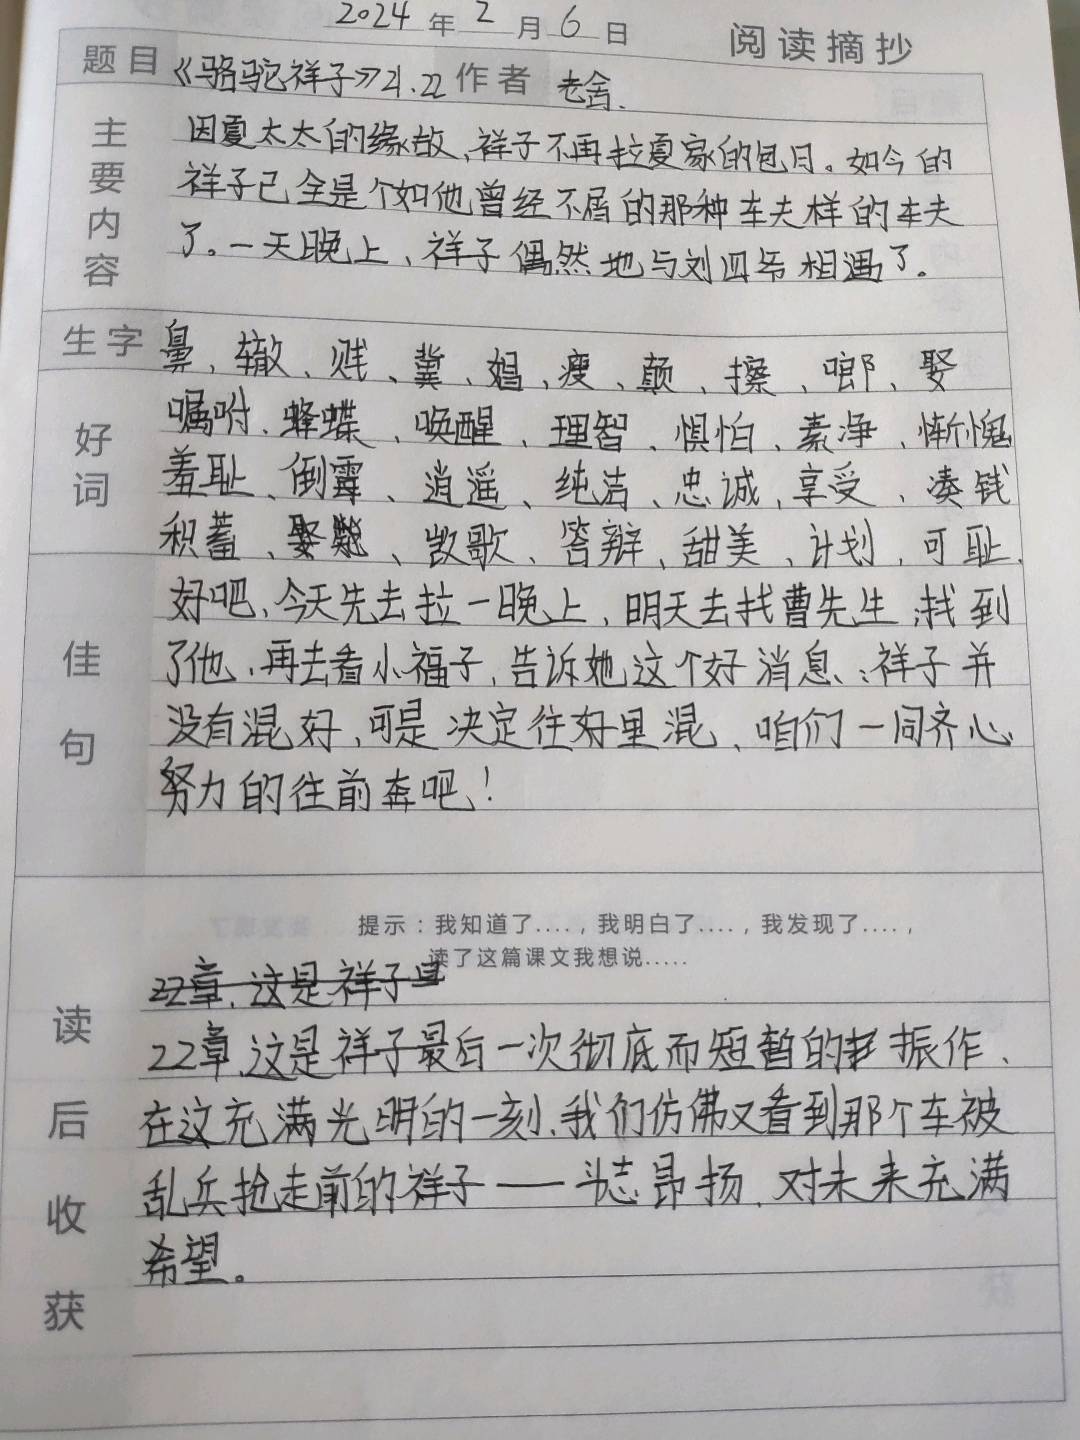 2024年2月6日 阅读摘抄
题目 《骆驼祥子》21.22 作者 老舍.
主要内容
因夏太太的缘故,祥子不再拉夏家的包月。如今的
祥子已全是个如他曾经不屑的那种车夫样的车夫
了。一天晚上,祥子偶然地与刘四爷相遇了。
生字 鼻、辙、贱、冀、娼、瘦、颠、擦、啷、娶
好词
嘱咐、蜂蝶、唤醒、理智、惧怕、素净、惭愧
羞耻、倒霉、逍遥、纯洁、忠诚、享受、凑钱
积蓄、、歌、答辩、甜美、计划、可耻.
佳句
好吧,今天先去拉一晚上,明天去找曹先生;找到
了他,再去看小福子,告诉她这个好消息:祥子并
没有混好,可是决定往好里混,咱们一同齐心
努力的往前奔吧!
读后收获
提示:我知道了....,我明白了....,我发现了....,
读了这篇课文我想说.....
22章,这是祥子
22章,这是祥子最后一次彻底而短暂的振作、
在这充满光明的一刻,我们仿佛又看到那个车被
乱兵抢走前的祥子——斗志昂扬,对未来充满
希望。